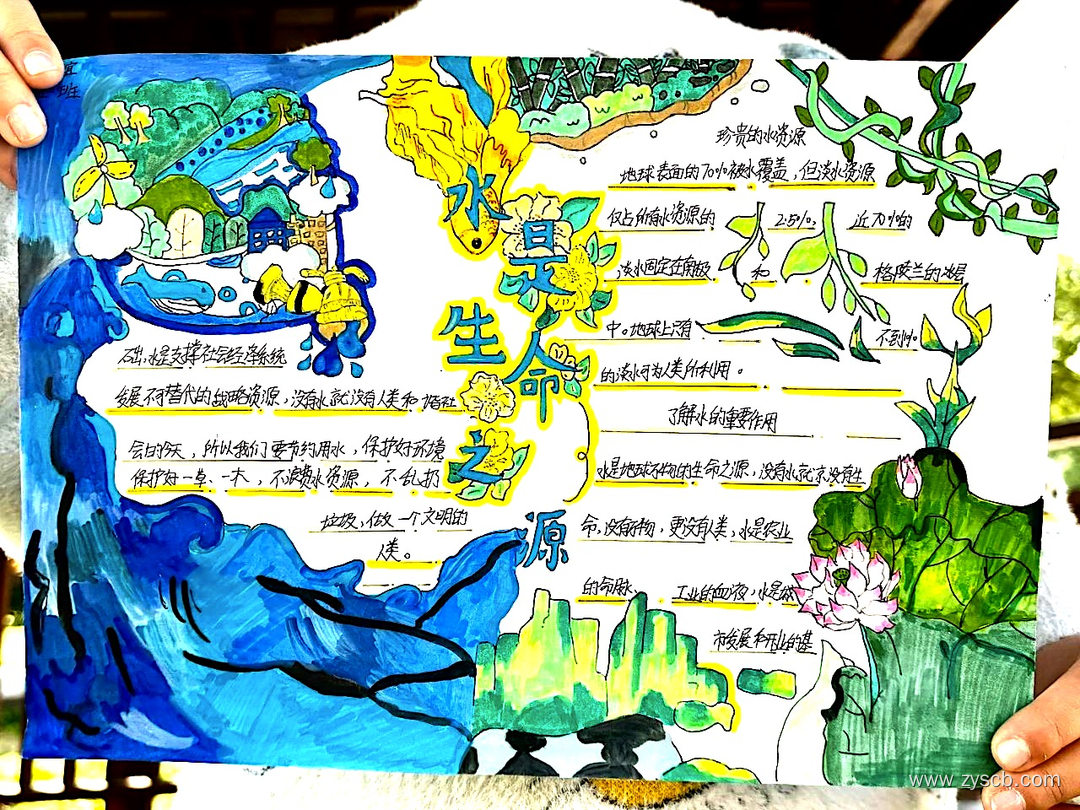 班
水是生命之源
珍贵的水资源
地球表面的70%被水覆盖，但淡水资源
仅占所有水资源的 2.5%，近70%的
淡水固定在南极 和 格陵兰的冰层
中。地球上只有 不到1%
的淡水可为人类所利用。
了解水的重要作用
水是地球万物的生命之源，没有水就没有生
命，没有万物，更没有人类，水是农业
的命脉， 工业的血液，水是城
市发展和行业的基
础，水是支撑社会经济系统
发展不可替代的战略资源，没有水就没有人类和 社
会的今天，所以我们要节约用水，保护好环境
保护好一草、一木，不浪费水资源，不乱扔
垃圾，做一个文明的
人类。
www.zyscb.com